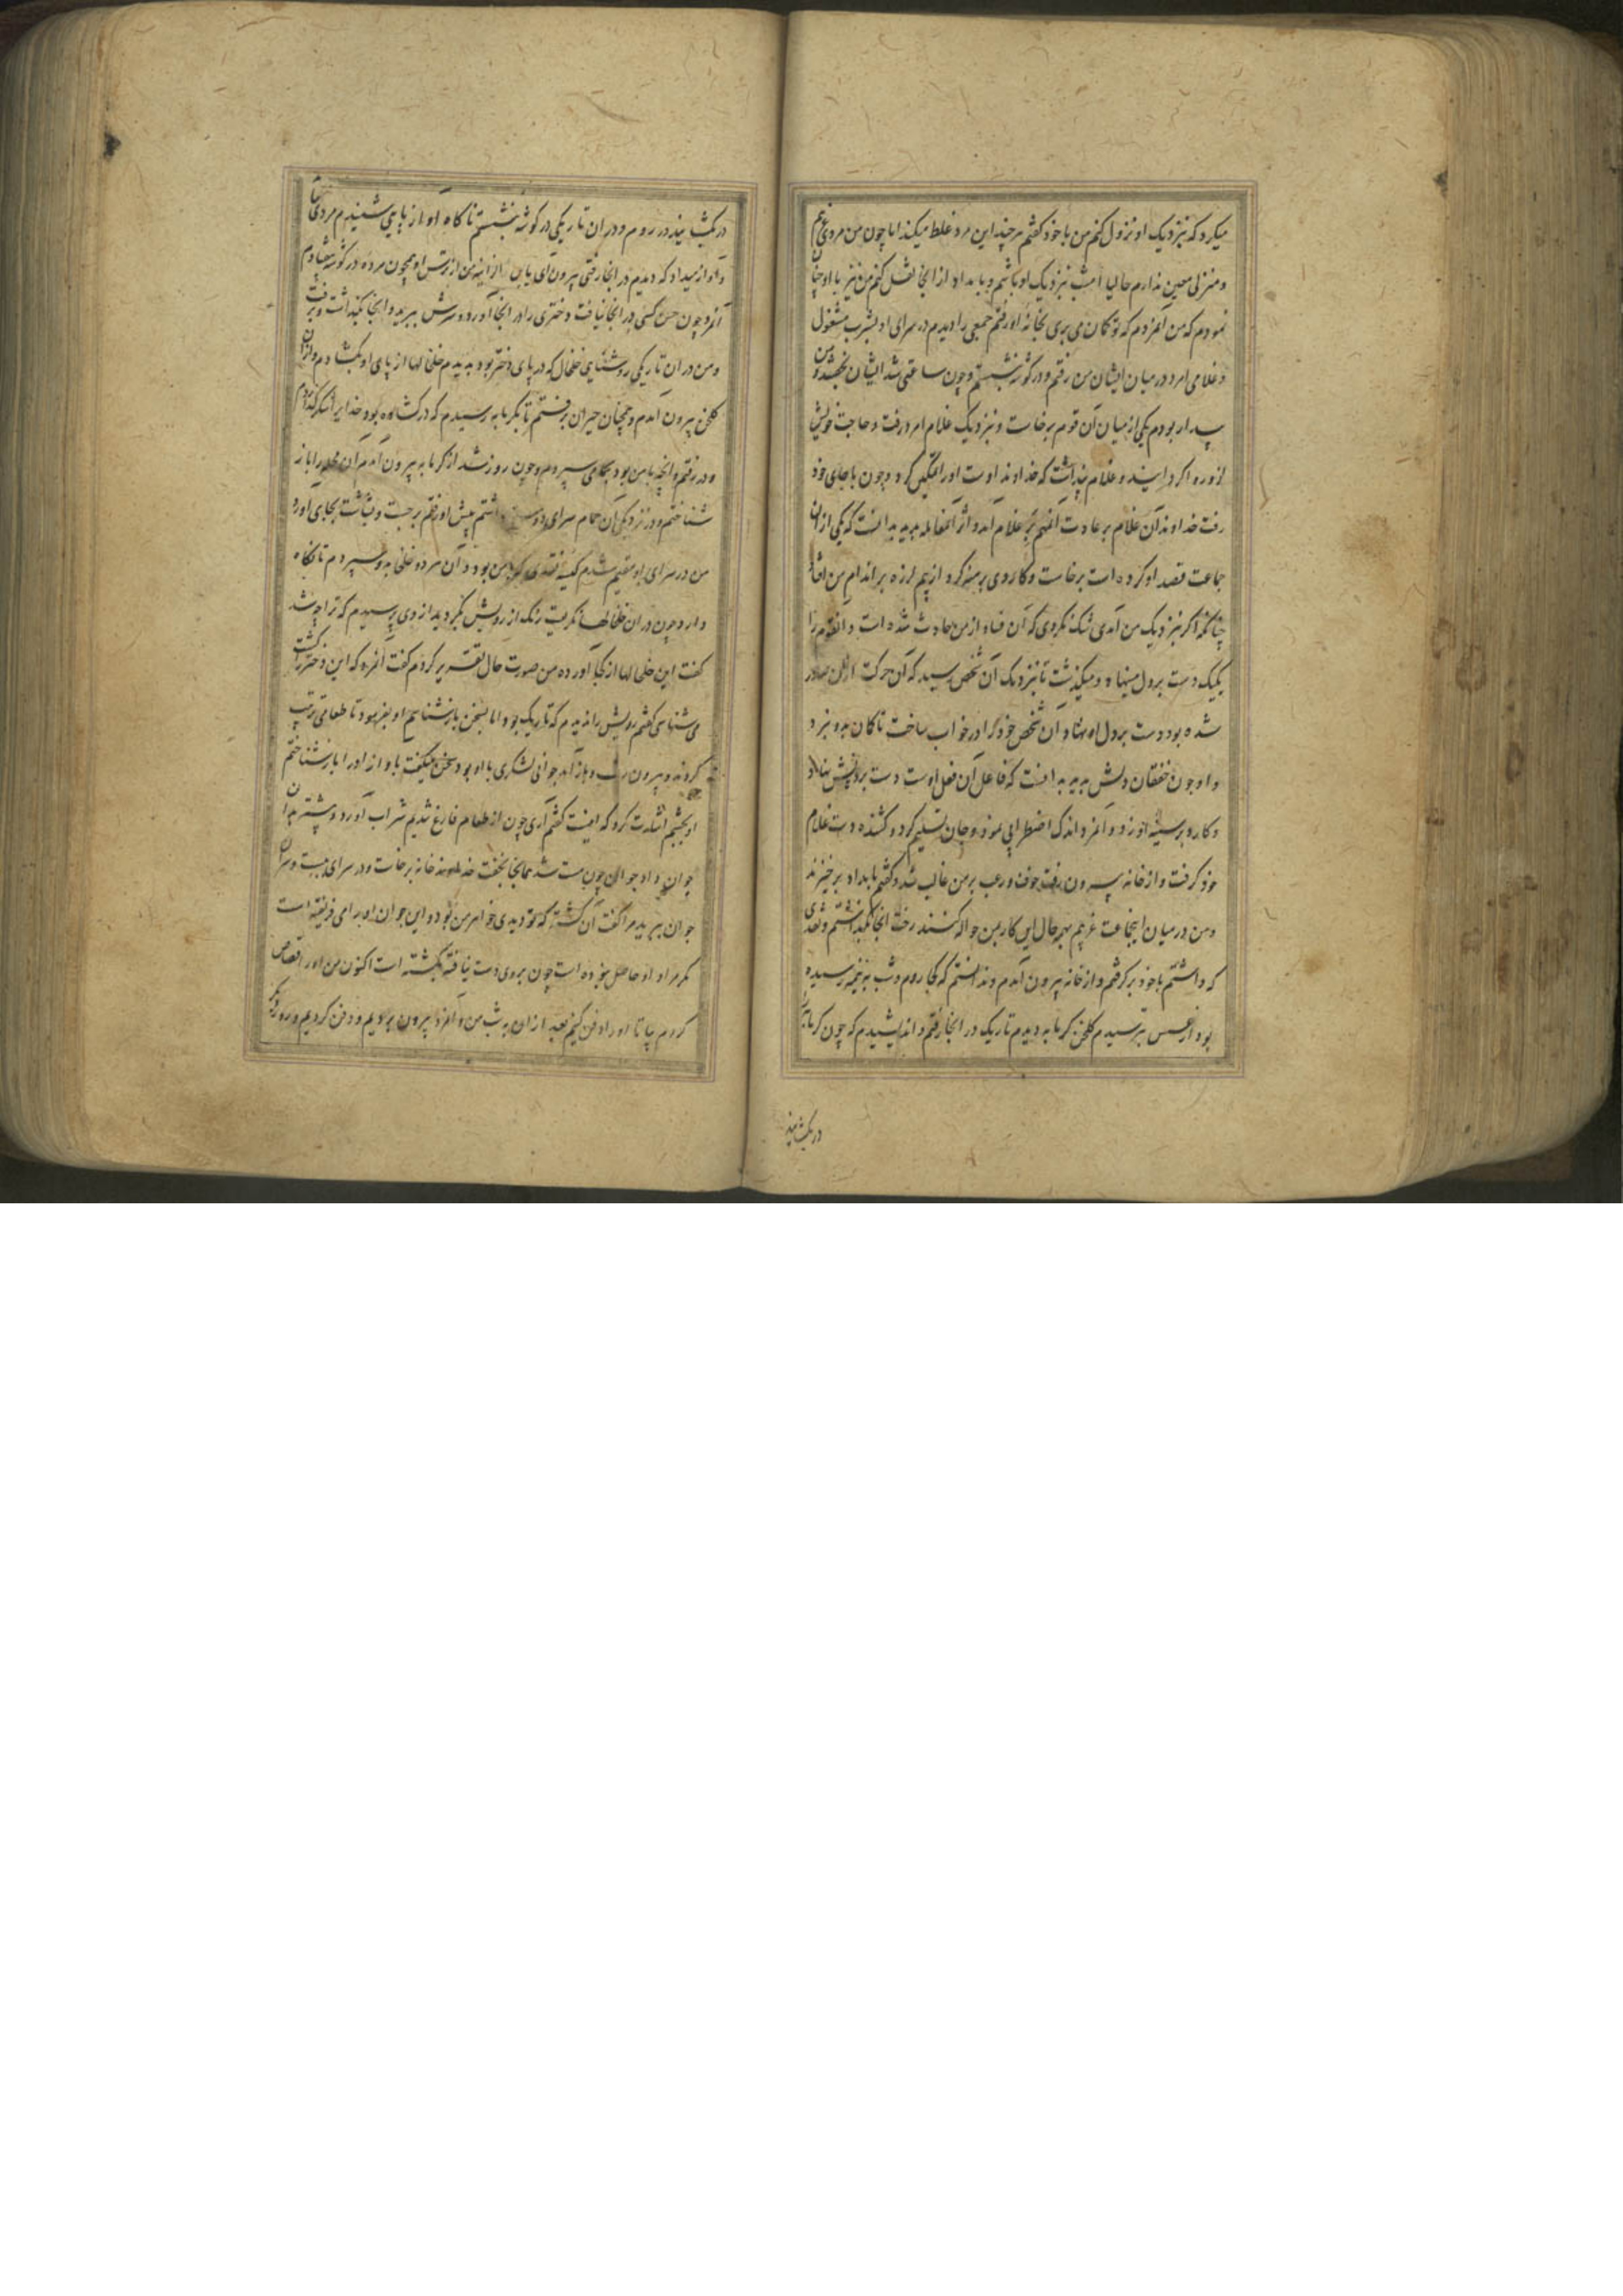 میکرد که بنزدیک او نزول کنم من با خود کفتم هر چند این مرد غلط میکند اما چون من مردی غریبم
و منزلی معین ندارم حالیا امشب بنزدیک او باشم و بامداد از انجا نقل کنم من نیز با او چنان
نمودم که من آنمردم که تو کمان می بری بخانه او رفتم جمعی را دیدم در سرای او بشرب مشغول
و غلامی امرد در میان ایشان من رفتم و در کوشه نشستم و چون ساعتی شد ایشان بخفتند و من
بیدار بودم یکی از میان آن قوم برخاست و نزدیک غلام امرد رفت و حاجت خویش
ازو روا کردانید و غلام پنداشت که خداوند اوست او را تمکین کرد و چون باجای خود
رفت خداوند آن غلام بر عادت بر غلام آمد و اثر آنمعامله بدید بدانست که یکی ازان
جماعت قصد او کرده است برخاست و کاردی برهنه کرد از بیم لرزه بر اندام من افتاد
چنانکه اکر بنزدیک من آمدی شک نکردی که آن فساد از من حادث شده است و آنقوم را
یکیک دست بر دل مینهاد و میکذشت تا بنزدیک آن شخص رسید که آن حرکت ازان صادر
شده بود دست بر دل او نهاد و آن شخص خود را در خواب ساخت تا کمان بدو نبرد
و او چون خفقان دلش بدید بدانست که فاعل آن فعل اوست دست بر دهنش نهاد
و کارد بر سینه او زد و آنمرد اندک اضطرابی نمود و جان تسلیم کرد و کشنده دست غلام
خود کرفت و از خانه بیرون رفت خوف و رعب بر من غالب شد و کفتم بامداد برخیزند
و من در میان اینجماعت غریبم بهر حال این کار بمن حواله کنند رخت آنجا بکذاشتم و نقدی
که داشتم با خود بر کرفتم و از خانه بیرون آمدم و ندانستم که کجا روم و شب به نیمه رسیده
بود از عسس بترسیدم کلخن کرمابه دیدم تاریک در انجا رفتم و اندیشیدم که چون کرمابه را
در بکشایند
در بکشایند در روم و در ان تاریکی در کوشه بنشستم ناکاه آواز پایی شنیدم مردی
و آواز میداد که دیدم در انجا رفتی بیرون آی من از ترس او همچون مرده در کوشه بیفتادم
آنمرد چون حس کسی در انجا نیافت دختری را در انجا آورد و سرش ببرید و انجا بکذاشت و برفت
و من در ان تاریکی روشنایی خلخال که در پای دختر بود بدیدم خلخالها از پای او بکشادم و ازان
کلخن بیرون آمدم و همچنان حیران میرفتم تا بکرمابه رسیدم که در کشاده بود خدایرا شکر کذاردم
و در رفتم و انچه با من بود بحمامی سپردم و چون روز شد از کرمابه بیرون آمدم آن محله را باز
شناختم و در نزدیکی آن حمام سرای دوستی داشتم پیش او رفتم برجست و بشاشت بجای آورد
من در سرای او مقیم شدم کیسه نقدی که با من بود و آن هر دو خلخال بدو سپردم تا نکاه
دارد چون در ان خلخالها نکریست رنک از رویش بکردید از وی پرسیدم که ترا چه شد
کفت این خلخالها از کجا آوردهٔ من صورت حال تقریر کردم کفت آنمرد که این دختر را کشت
می شناسی کفتم رویش را ندیدم که تاریک بود اما بسخن باز شناسم او بفرمود تا طعامی ترتیب
کردند و بیرون رفت و باز آمد جوانی لشکری با او بود سخن میکفت بآواز او را باز شناختم
او بچشم اشارت کرد که اینست کفتم آری چون از طعام فارغ شدیم شراب آورد و بیشتر بدان
جوان داد جوان چون مست شد همانجا بخفت خداوند خانه برخاست و در سرای ببست و سر آن
جوان ببرید مرا کفت آن کشته که تو دیدی خواهر من بود و این جوان او را می فریفته است
مکر مراد او حاصل نبوده است چون بر وی دست نیافته بکشته است اکنون من او را قصاص
کردم بیا تا او را دفن کنیم بعد ازان به شب من و آنمرد بیرون بردیم و دفن کردیم و روز دیکر